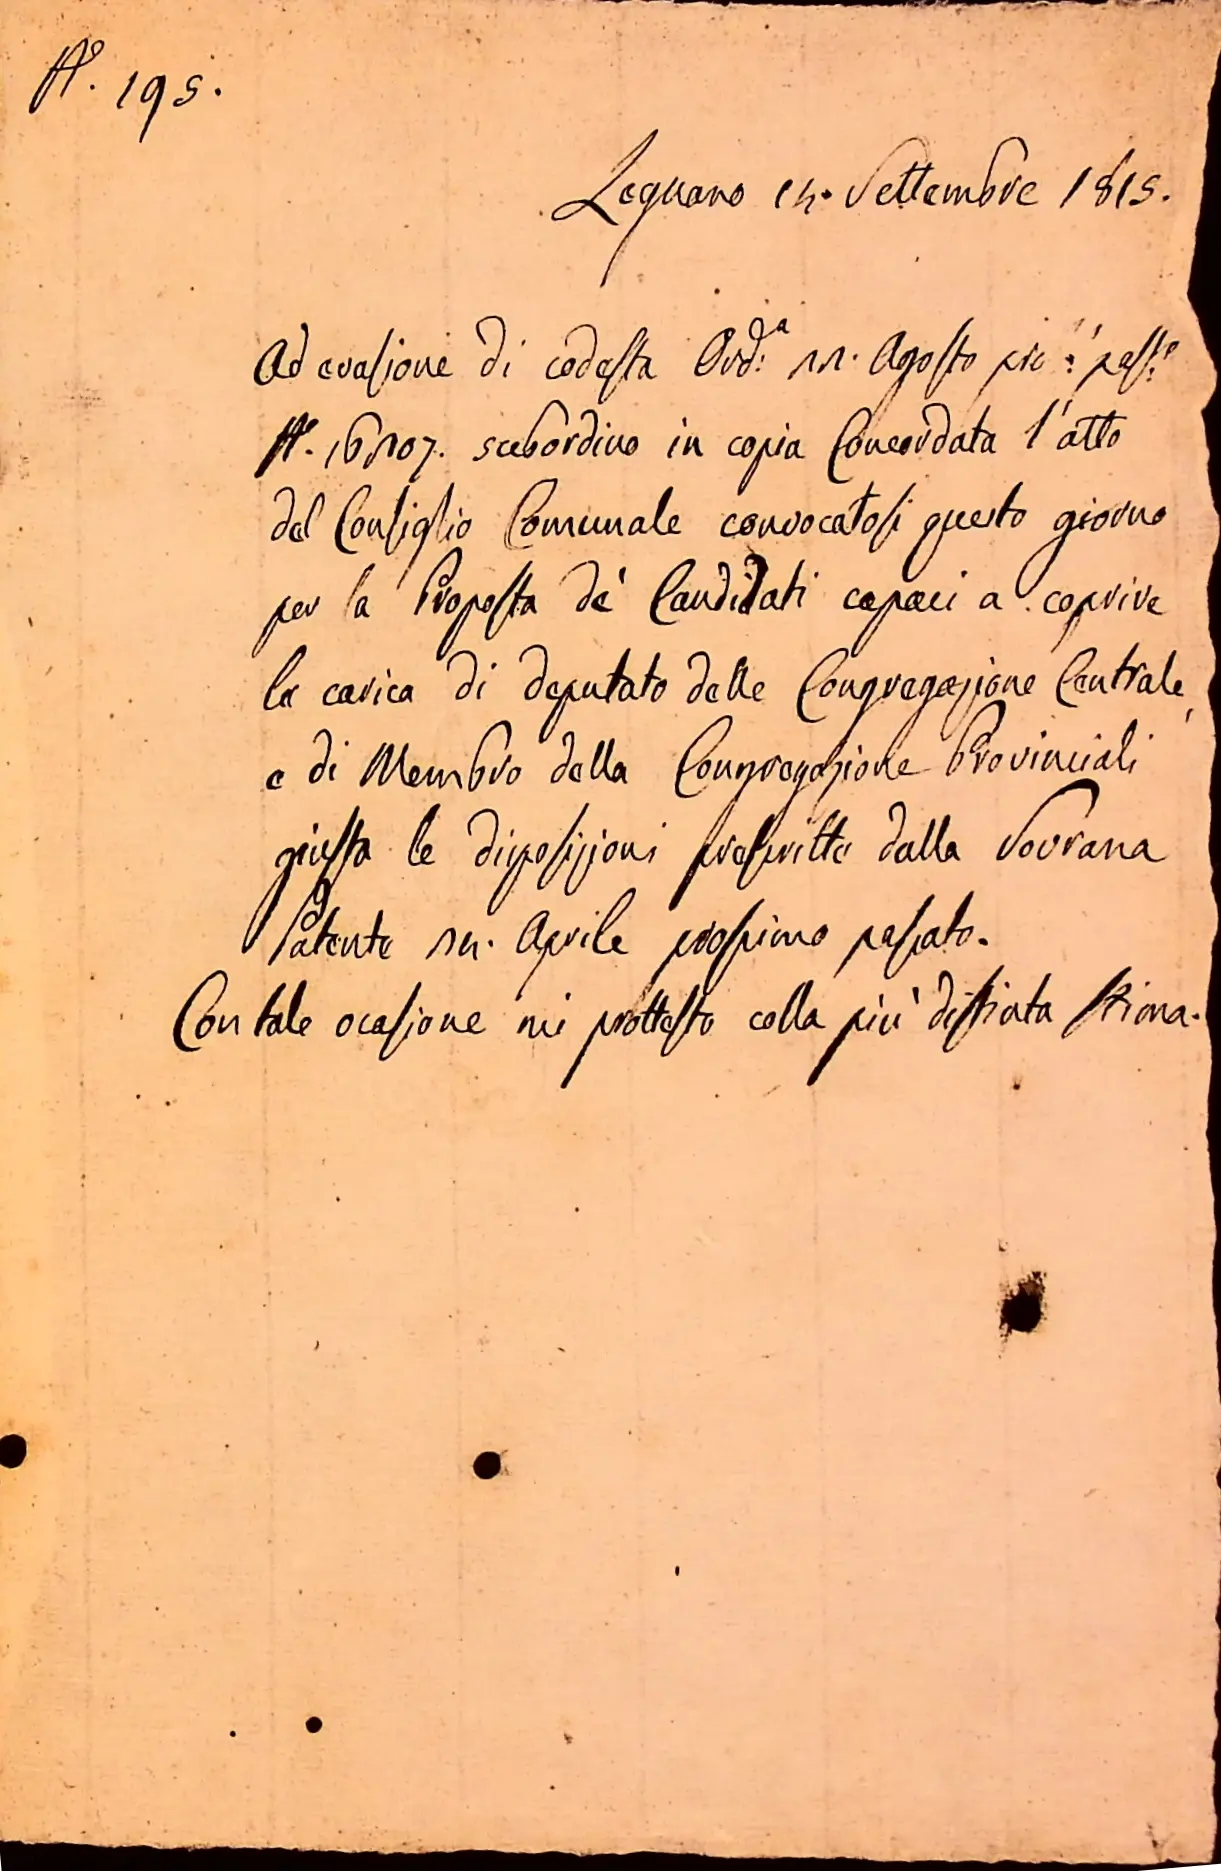 N.° 195.
Legnano 14. Settembre 1815.
Ad evasione di codesta Ord.ª 22. Agosto pro: pass:º
N.° 16207. subordino in copia Concordata l'atto
del Consiglio Comunale convocatosi questo giorno
per la Proposta de' Candidati capaci a coprire
la carica di deputato delle Congregazione Centrale,
e di Membro della Congregazione Provinciali
giusta le disposizioni prescritte dalla Sovrana
Patente 24. Aprile prossimo passato.
Con tale ocasione mi prottesto colla più distinta stima.